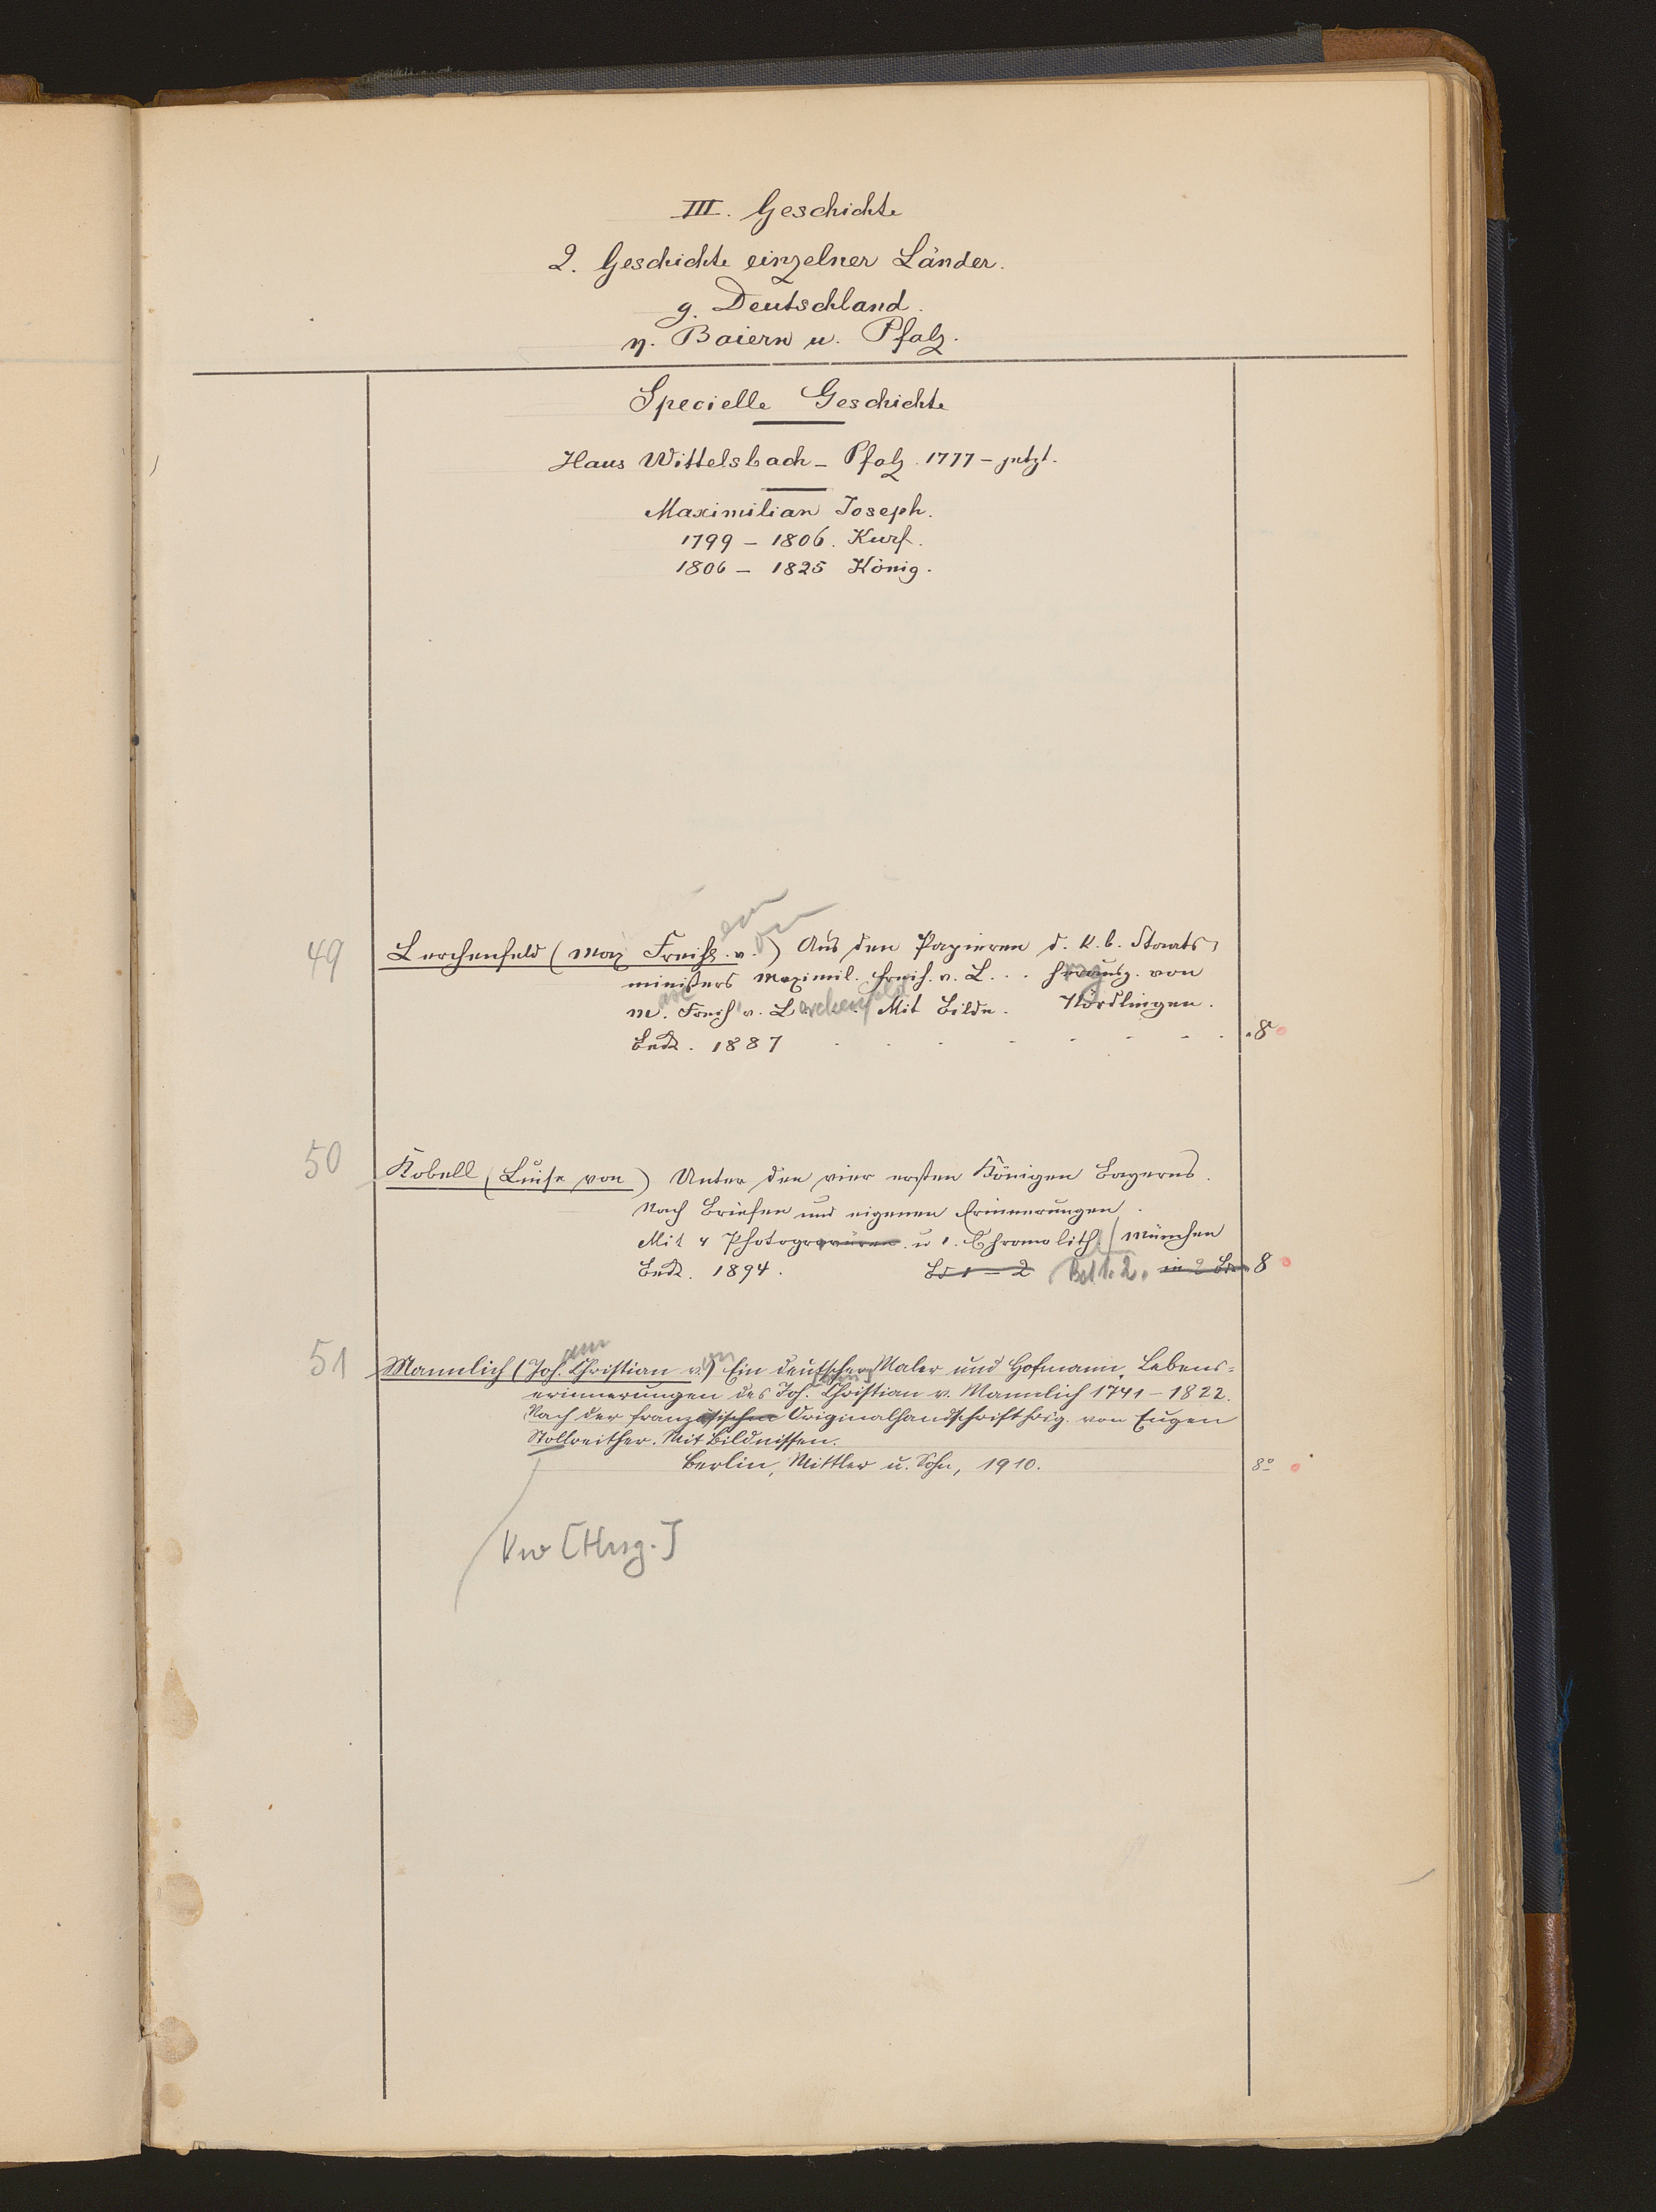 III. Geschichte
2. Geschichte einzelner Länder.
g. Deutschland.
η. Baiern u. Pfalz.
Specielle Geschichte
Haus Wittelsbach - Pfalz. 1777 - jetzt.
Maximilian Joseph.
1799 - 1806. Kurf.
1806 - 1825 König.
49 Lerchenfeld (Max Freih. v.) Aus den Papieren d. k. b. Staats-
ministers Maximil. Freih. v. L... herausg. von
M. Freih. v. Lerchenfeld Mit Bilde. Nördlingen.
Beck. 1887 . . . . . . . 8
50 Kobell (Luise von) Unter den vier ersten Königen Bayerns.
Nach Briefen und eigenen Erinnerungen.
Mit 4 Photogravüren. u 1. Chromolith. / München
Beck. 1894. Bd 1 - 2 Bd 1. 2. in 2 Bdn 8
51 Mannlich (Joh. Christian v.) Ein deutscher Maler und Hofmann. Lebens-
erinnerungen des Joh. Christian v. Mannlich 1741 - 1822.
Nach der französischen Originalhandschrift hrsg. von Eugen
Stollreither. Mit Bildnissen.
Berlin, Mittler u. Sohn, 1910. 8º
Vw [Hrsg.]